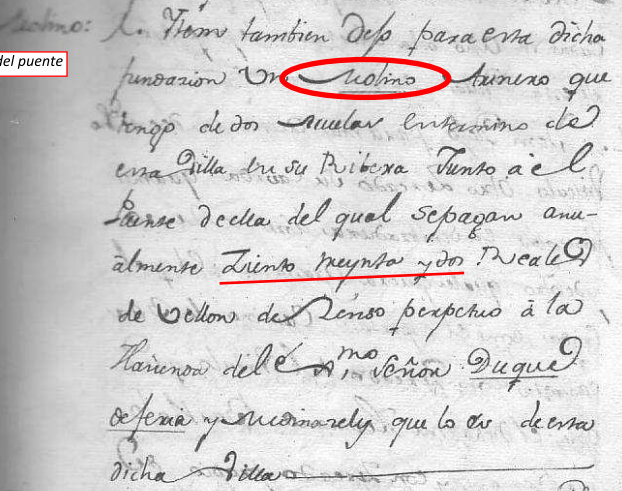 Molino:
del puente
Ytem tambien dejo para esta dicha
fundazion Un Molino Arinero que
tengo de dos Muelas en termino de
esta Villa en su Ribera Junto à el
Puente de ella del qual sepagan anu-
àlmente Ziento treynta y dos Reales
de vellon de Zenso perpetuo à la
Hazienda del Exmo Señor Duque
de feria y Medinazely que lo es de esta
dicha Villa